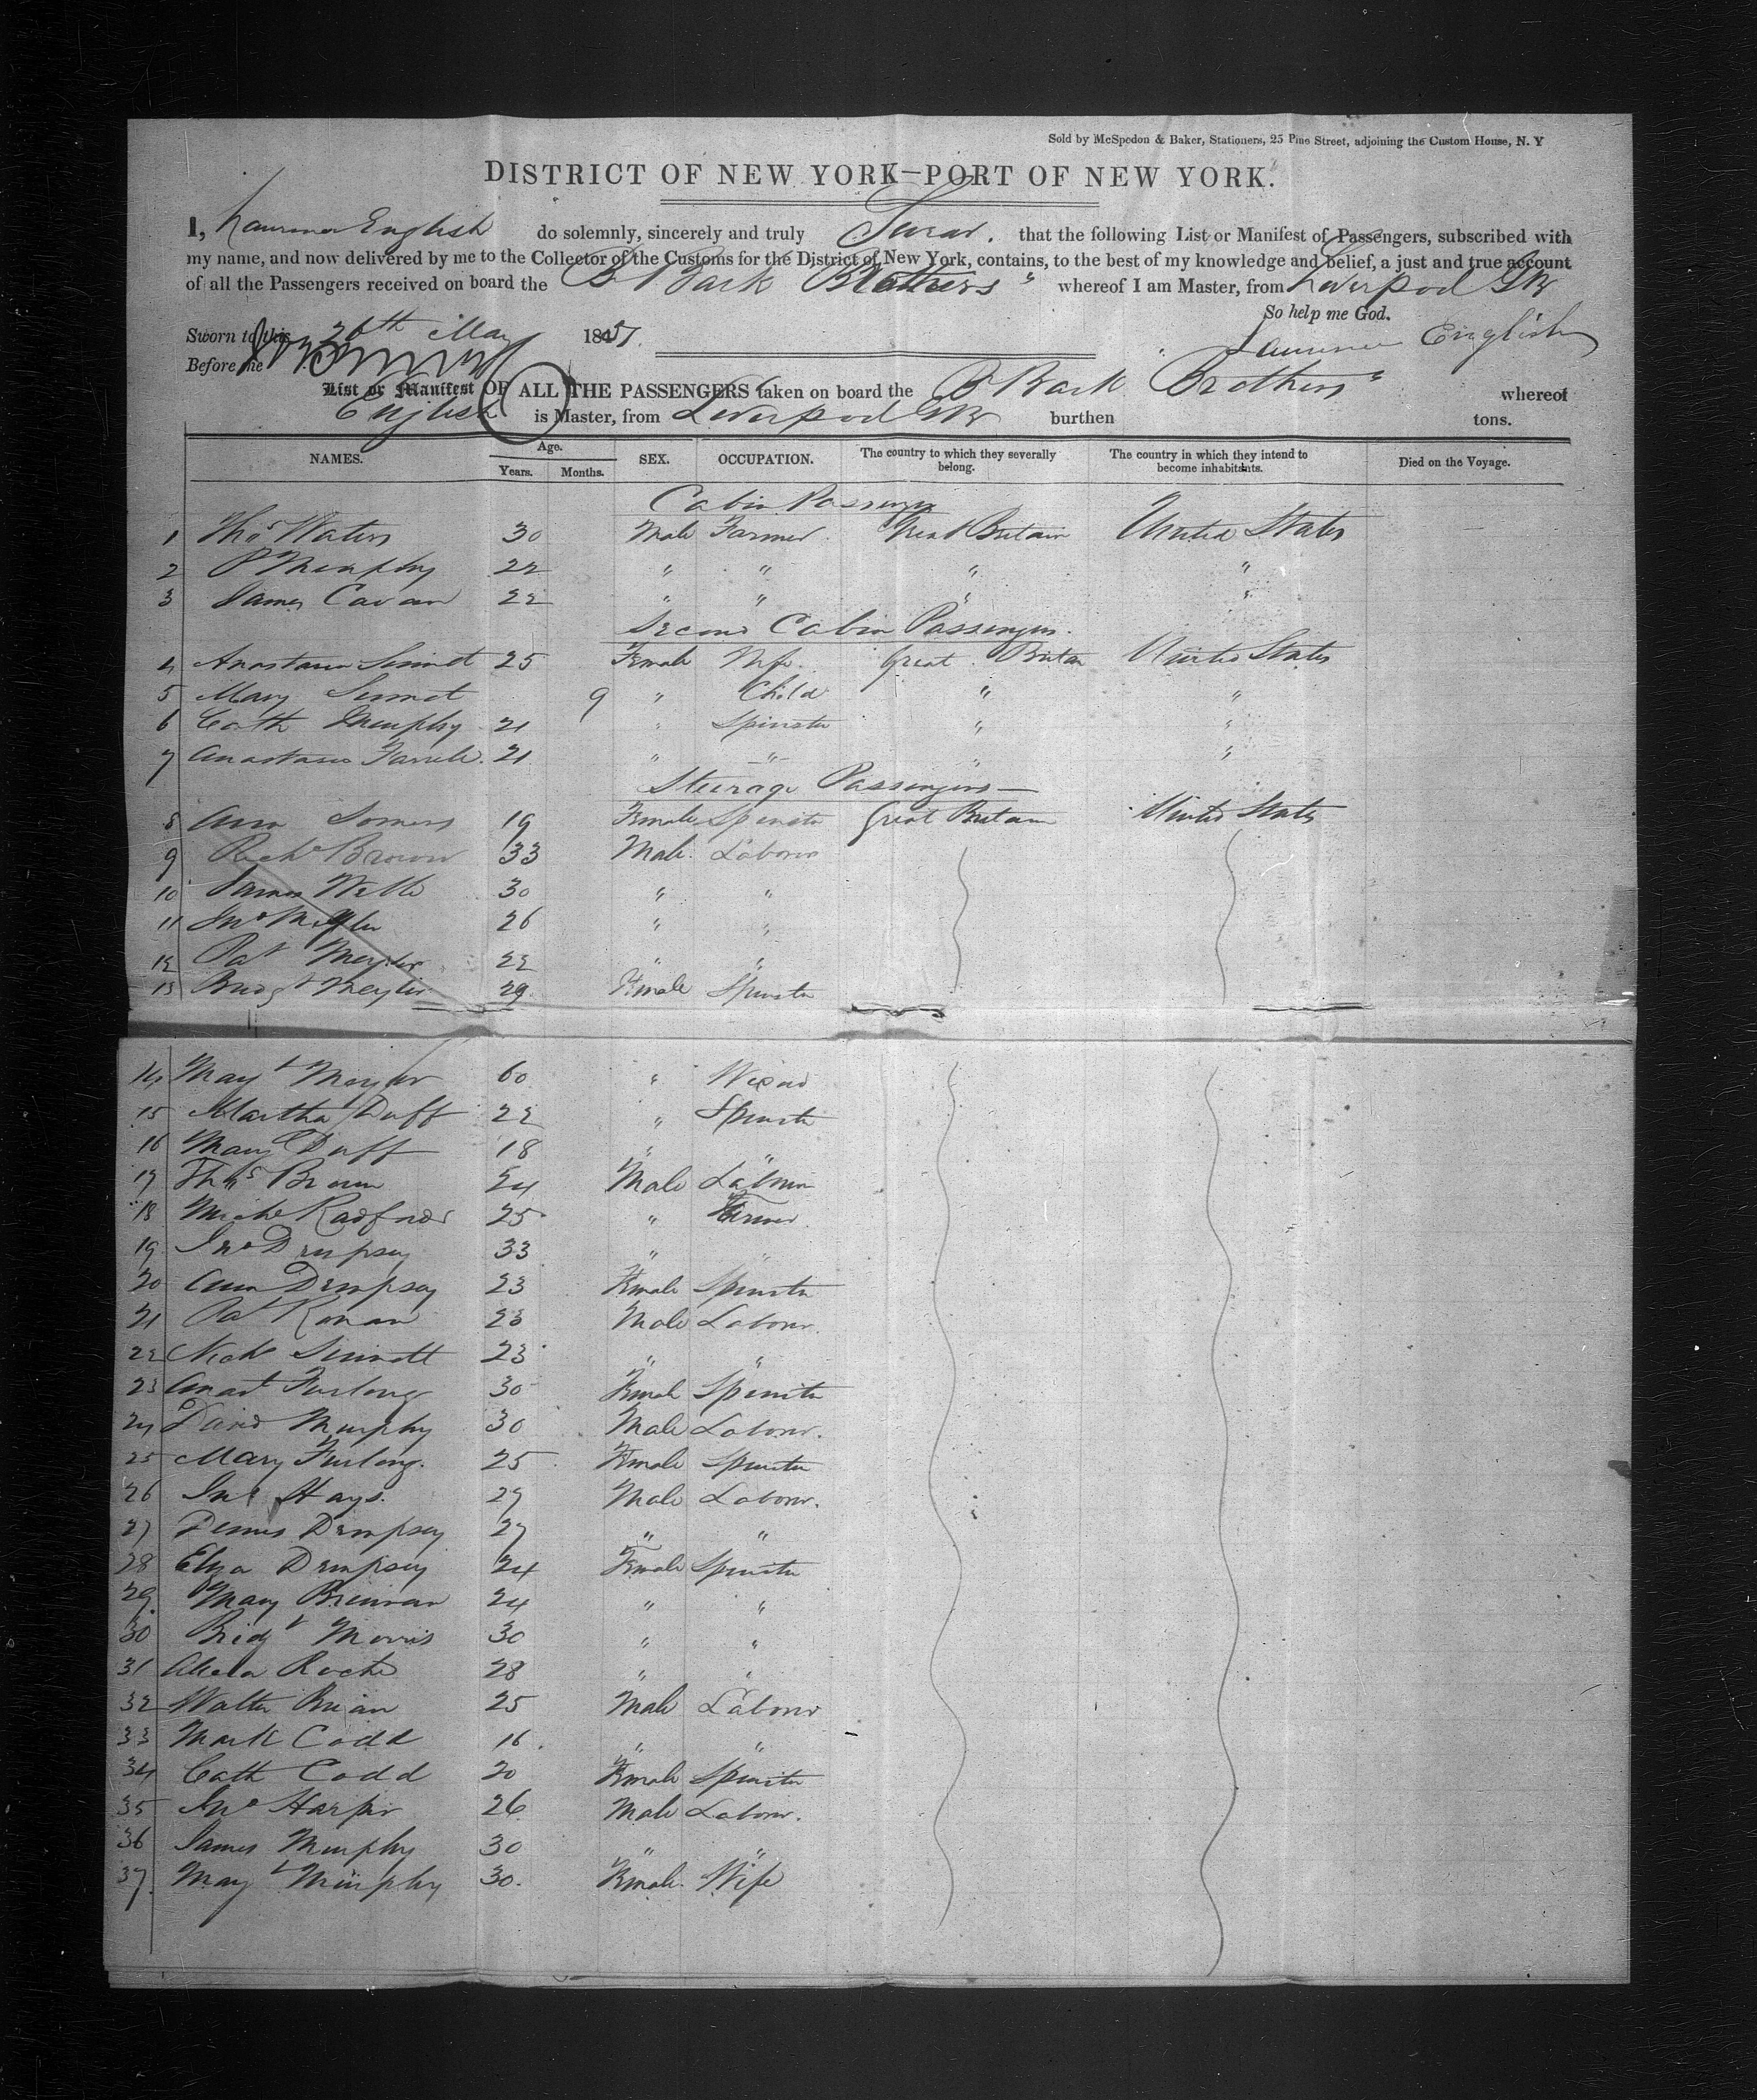 Sold by McSpedon & Baker, Stationers, 25 Pine Street, adjoining the Custom House, N. Y
DISTRICT OF NEW YORK—PORT OF NEW YORK.
I, English do solemnly, sincerely and truly Swear. that the following List or Manifest of Passengers, subscribed with
my name, and now delivered by me to the Collector of the Customs for the District of New York, contains, to the best of my knowledge and belief, a just and true account
of all the Passengers received on board the B Bark Brothers" whereof I am Master, from Liverpool
So help me God.
Sworn to this 26th May 1851.
Before me
English
List or Manifest OF ALL THE PASSENGERS taken on board the B Bark Brothers" whereof
English is Master, from Liverpool burthen tons.
NAMES. Age. Years. Months. SEX. OCCUPATION. The country to which they severally belong. The country in which they intend to become inhabitants. Died on the Voyage.
Cabin Passengers
1 Thos Waters 30 Male Farmer Great Britain United States
2 P Murphy 22 " " " "
3 James Cavan 22 " " " "
Second Cabin Passengers.
4 Anastasia Sinnot 25 Female Wife. Great Britain United States
5 Mary Sinnot 9 " Child " "
6 Cath Murphy 21 " Spinster " "
7 Anastasia 21 " " " "
Steerage Passengers
8 Ann Somers 19 Female Spinster Great Britain United States
9 Richd Brown 33 Male. Laborer
10 James Webb 30 " "
11 Jno Meyler 26 " "
12 Pat Meyler 22 " "
13 Bridgt Meyler 29. Female Spinster
14 Mayt Meyler 60 "
15 Martha Duff 22 " Spinster
16 Mary Duff 18 " "
17 Thos Brown 24 Male Laborer
18 Michl Radford 25 " Farmer
19 Jno Dempsey 33 " "
20 Ann Dempsey 23 Female Spinster
21 Pat 23 Male Laborer.
22 Nichs Sinnott 23 " "
23 Anast Furlong 30 Female Spinster
24 David Murphy 30 Male Laborer.
25 Mary Furlong. 25 Female Spinster
26 Jno Hays. 27 Male Laborer.
27 Dennis Dempsey 27 " "
28 Eliza Dempsey 24 Female Spinster
29 Mary Brennan 24 " "
30 Bridgt Morris 30 " "
31 Alicia Roche 28 " "
32 Walter Brian 25 Male Laborer
33 Mark Codd 16. " "
34 Cath Codd 20 Female Spinster
35 Jno Harper 26 Male Laborer.
36 James Murphy 30 " "
37 Mayt Murphy 30. Female. Wife